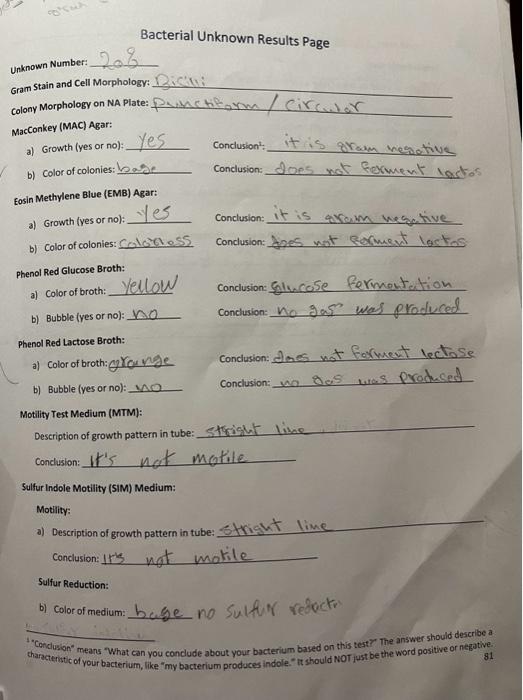 Bacterial Unknown Results Page
Unknown Number: 208
Gram Stain and Cell Morphology: Bicilli
Colony Morphology on NA Plate: Punctiform / circular
MacConkey (MAC) Agar:
a) Growth (yes or no): Yes Conclusion¹: it is gram negative
b) Color of colonies: bage Conclusion: does not ferment lactos
Eosin Methylene Blue (EMB) Agar:
a) Growth (yes or no): Yes Conclusion: it is gram negative
b) Color of colonies: Colorless Conclusion: does not ferment lactos
Phenol Red Glucose Broth:
a) Color of broth: Yellow Conclusion: Glucose fermentation
b) Bubble (yes or no): no Conclusion: no gas was produced
Phenol Red Lactose Broth:
a) Color of broth: orange Conclusion: does not ferment lectose
b) Bubble (yes or no): no Conclusion: no gas was produced
Motility Test Medium (MTM):
Description of growth pattern in tube: stright line
Conclusion: It's not motile
Sulfur Indole Motility (SIM) Medium:
Motility:
a) Description of growth pattern in tube: stright line
Conclusion: It's not motile
Sulfur Reduction:
b) Color of medium: bage no sulfur reductn
¹ "Conclusion" means "What can you conclude about your bacterium based on this test?" The answer should describe a
characteristic of your bacterium, like "my bacterium produces indole." It should NOT just be the word positive or negative.
81